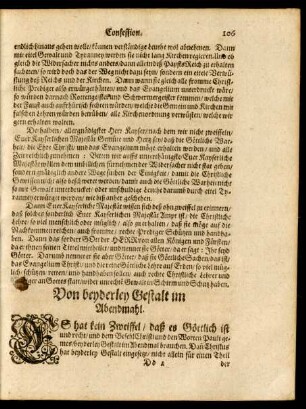 Confession. 106
endlich hinaus gehen wolle / können verständige leuthe wol abnemen. Dann
mit eitel Gewalt und Tyranney werden sie nicht lang Kirchen regieren. Und ob
gleich die Widersacher nichts anders / dann allein deß Papsts Reich zu erhalten
suchten / so wird doch das der Weg nicht dazu seyn / sondern ein eitele Verwü-
stung deß Reichs und der Kirchen. Dann wann sie gleich alle fromme Christ-
liche Prediger also erwürget hätten / und das Evangelium unterdruckt wäre /
so würden darnach Rottengeister und Schwermergeister kommen / welche mit
der Faust auch auffrührisch fechten würden / welche die Gemein und Kirchen mit
falschen Lehren würden / alle Kirchenordnung verwüsten / welche wir
gern erhalten wolten.
Deßhalben / allergnädigster Herr Kayser / nach dem wir nicht zweiffeln /
Euer Kayserlichen Majestät Gemüt und Hertz sey / daß die Göttliche War-
heit / die Ehre Christi und das Evangelium möge erhalten werden / und alle
Zeit reichlich zunehmen / Bitten wir auffs unterthänigste / Euer Kayserliche
Majestät wöllen dem unbillichen fürnehmen der Widersacher nicht stat geben /
sondern gnädiglich andere Wege suchen der Einigkeit / dann die Christliche
Gewissen also beschwert werden / und die Göttliche Warheit nicht
so mit Gewalt unterdrucket / oder unschuldige Leuthe darumb durch eitel Ty-
ranney erwürget werden / wie bißanher geschehen.
Dann Euer Kayserliche Majestät wissen sich deß ohn zweiffel zu erinnern /
daß solches sonderlich Euer Kayserlichen Majestät Ampt ist / die Christliche
Lehre / so viel menschlich oder müglich / also zu erhalten / daß sie möge auff die
Nachkommen reichen / auch fromme / rechte Prediger Schützen und handhaben.
Dann das fordert GOtt der HERR von allen Königen und Fürsten /
da er ihnen seinen Titel mittheilet / und nennet sie Götter / da er sagt: Ihr seyd
Götter. Darumb nennet er sie aber Götter / daß sie Göttliche Sachen / das ist /
das Evangelium Christi / und die reine Göttliche Lehre auff Erden / so viel müg-
lich / schützen / retten / und handhaben sollen / auch rechte Christliche Lehrer und
Prediger an Gottes statt / wider unrechten Gewalt in Schirm und Schutz haben.
Von beyderley Gestalt im
Abendmahl.
ES hat kein Zweiffel / daß es Göttlich ist
und recht / und dem Befehl Christi und den Worten Pauli ge-
mäß / beyderley Gestalt im Abendmal brauchen. Dann Christus
hat beyderley Gestalt eingesetzt / nicht allein für einen Theil
Dd 2 der